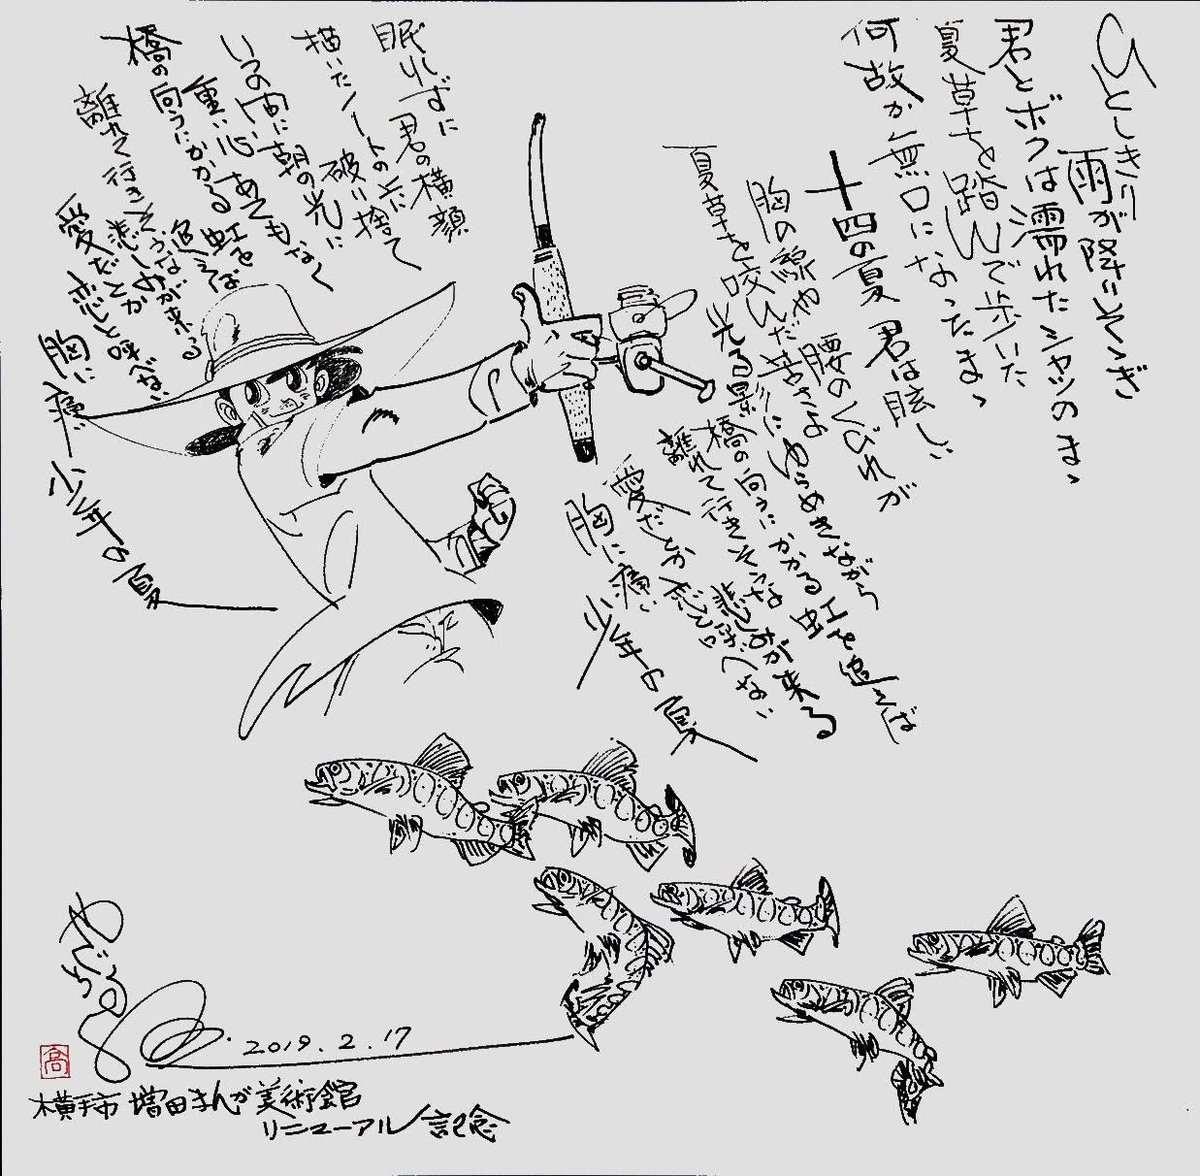 ひとしきり
雨が降りそゝぎ
君とボクは濡れたシャツのまゝ
夏草を踏んで歩いた
何故か無口になったまゝ
十四の夏 君は眩しい
胸の線や 腰のくびれが
夏草を咬んだ苦さよ
光る影にゆらめきながら
橋の向うにかかる虹を追えば
離れて行きそうな
悲しみが来る
愛だとか恋と呼べない
胸に痛い
少年の夏
眠れずに 君の横顔
描いたノートの片に
破り捨て
いつの間に朝の光に
重い心あてもなく
橋の向うにかかる虹を
追えば
離れて行きそうな
悲しみが来る
愛だとか
恋と呼べない
胸に痛い
少年の夏
やぐちたかお
2019.2.17
高
横手市 増田まんが美術館
リニューアル記念